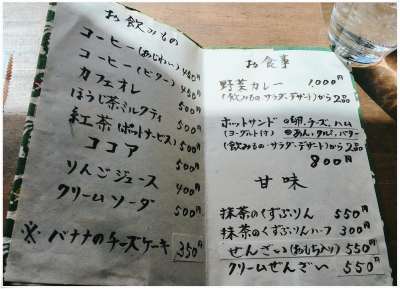 お飲みもの
コーヒー(あじわい) 450円
コーヒー(ビター) 450円
カフェオレ 500円
ほうじ茶ミルクティ 500円
紅茶(ポットサービス) 500円
ココア 500円
りんごジュース 400円
クリームソーダ 500円
※バナナのチーズケーキ 350円
お食事
野菜カレー 1000円
(飲みもの・サラダ・デザート)から2品
ホットサンド ①卵、チーズ、ハム
(ヨーグルト付) ②あん、クルミ、バター
(飲みもの・サラダ・デザート)から2品
800円
甘味
抹茶のくずぷりん 550円
抹茶のくずぷりんハーフ 300円
ぜんざい(おもち入り) 550円
クリームぜんざい 550円